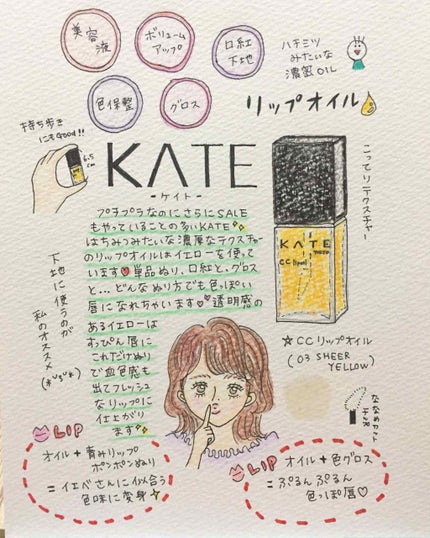 美容液
ボリュームアップ
口紅下地
色保整
グロス
ハチミツ
みたいな
濃密OIL
リップオイル
持ち歩き
にもGood!!
6.5
cm
KATE
-ケイト-
こってりテクスチャー
プチプラなのにさらにSALE
もやっていることの多いKATE
はちみつみたいな濃厚なテクスチャー
のリップオイルはイエローを使って
います単品ぬり、口紅と、グロス
と…どんなぬり方でも色っぽい
唇になれちゃいます透明感の
あるイエローは
すっぴん唇に
これだけぬり
で血色感も
出てフレッシュ
なリップに
仕上がり
ます
下地に使うのが
私のオススメ
(*'▽'*)
KATE
TOKYO
CC [lipoil]
☆CCリップオイル
(03 SHEER
YELLOW)
ななめカット
チップ
LIP
オイル+青みリップ
ポンポンぬり
=イエベさんに似合う
色味に変身
LIP
オイル+色グロス
=ぷるんぷるん
色っぽ唇♡